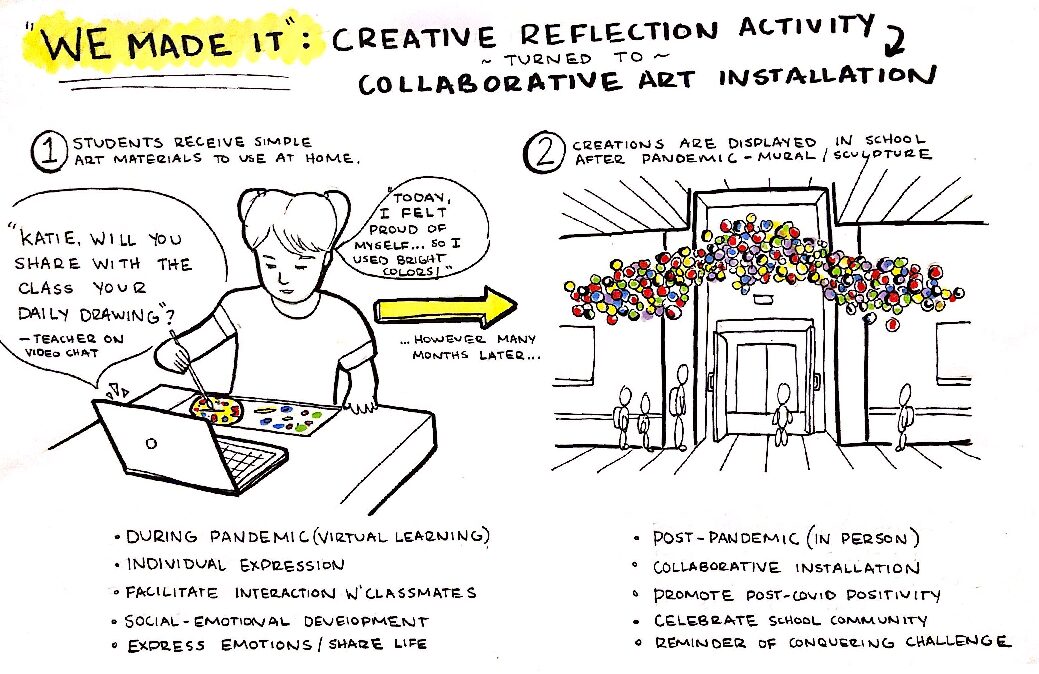 "WE MADE IT": CREATIVE REFLECTION ACTIVITY
~ TURNED TO ~
COLLABORATIVE ART INSTALLATION
1 STUDENTS RECEIVE SIMPLE
ART MATERIALS TO USE AT HOME.
"KATIE, WILL YOU
SHARE WITH THE
CLASS YOUR
DAILY DRAWING"?
- TEACHER ON
VIDEO CHAT
"TODAY,
I FELT
PROUD OF
MYSELF... SO I
USED BRIGHT
COLORS!"
... HOWEVER MANY
MONTHS LATER...
2 CREATIONS ARE DISPLAYED IN SCHOOL
AFTER PANDEMIC - MURAL / SCULPTURE
• DURING PANDEMIC (VIRTUAL LEARNING)
• INDIVIDUAL EXPRESSION
• FACILITATE INTERACTION W' CLASSMATES
• SOCIAL-EMOTIONAL DEVELOPMENT
• EXPRESS EMOTIONS / SHARE LIFE
• POST-PANDEMIC (IN PERSON)
• COLLABORATIVE INSTALLATION
• PROMOTE POST-COVID POSITIVITY
• CELEBRATE SCHOOL COMMUNITY
• REMINDER OF CONQUERING CHALLENGE